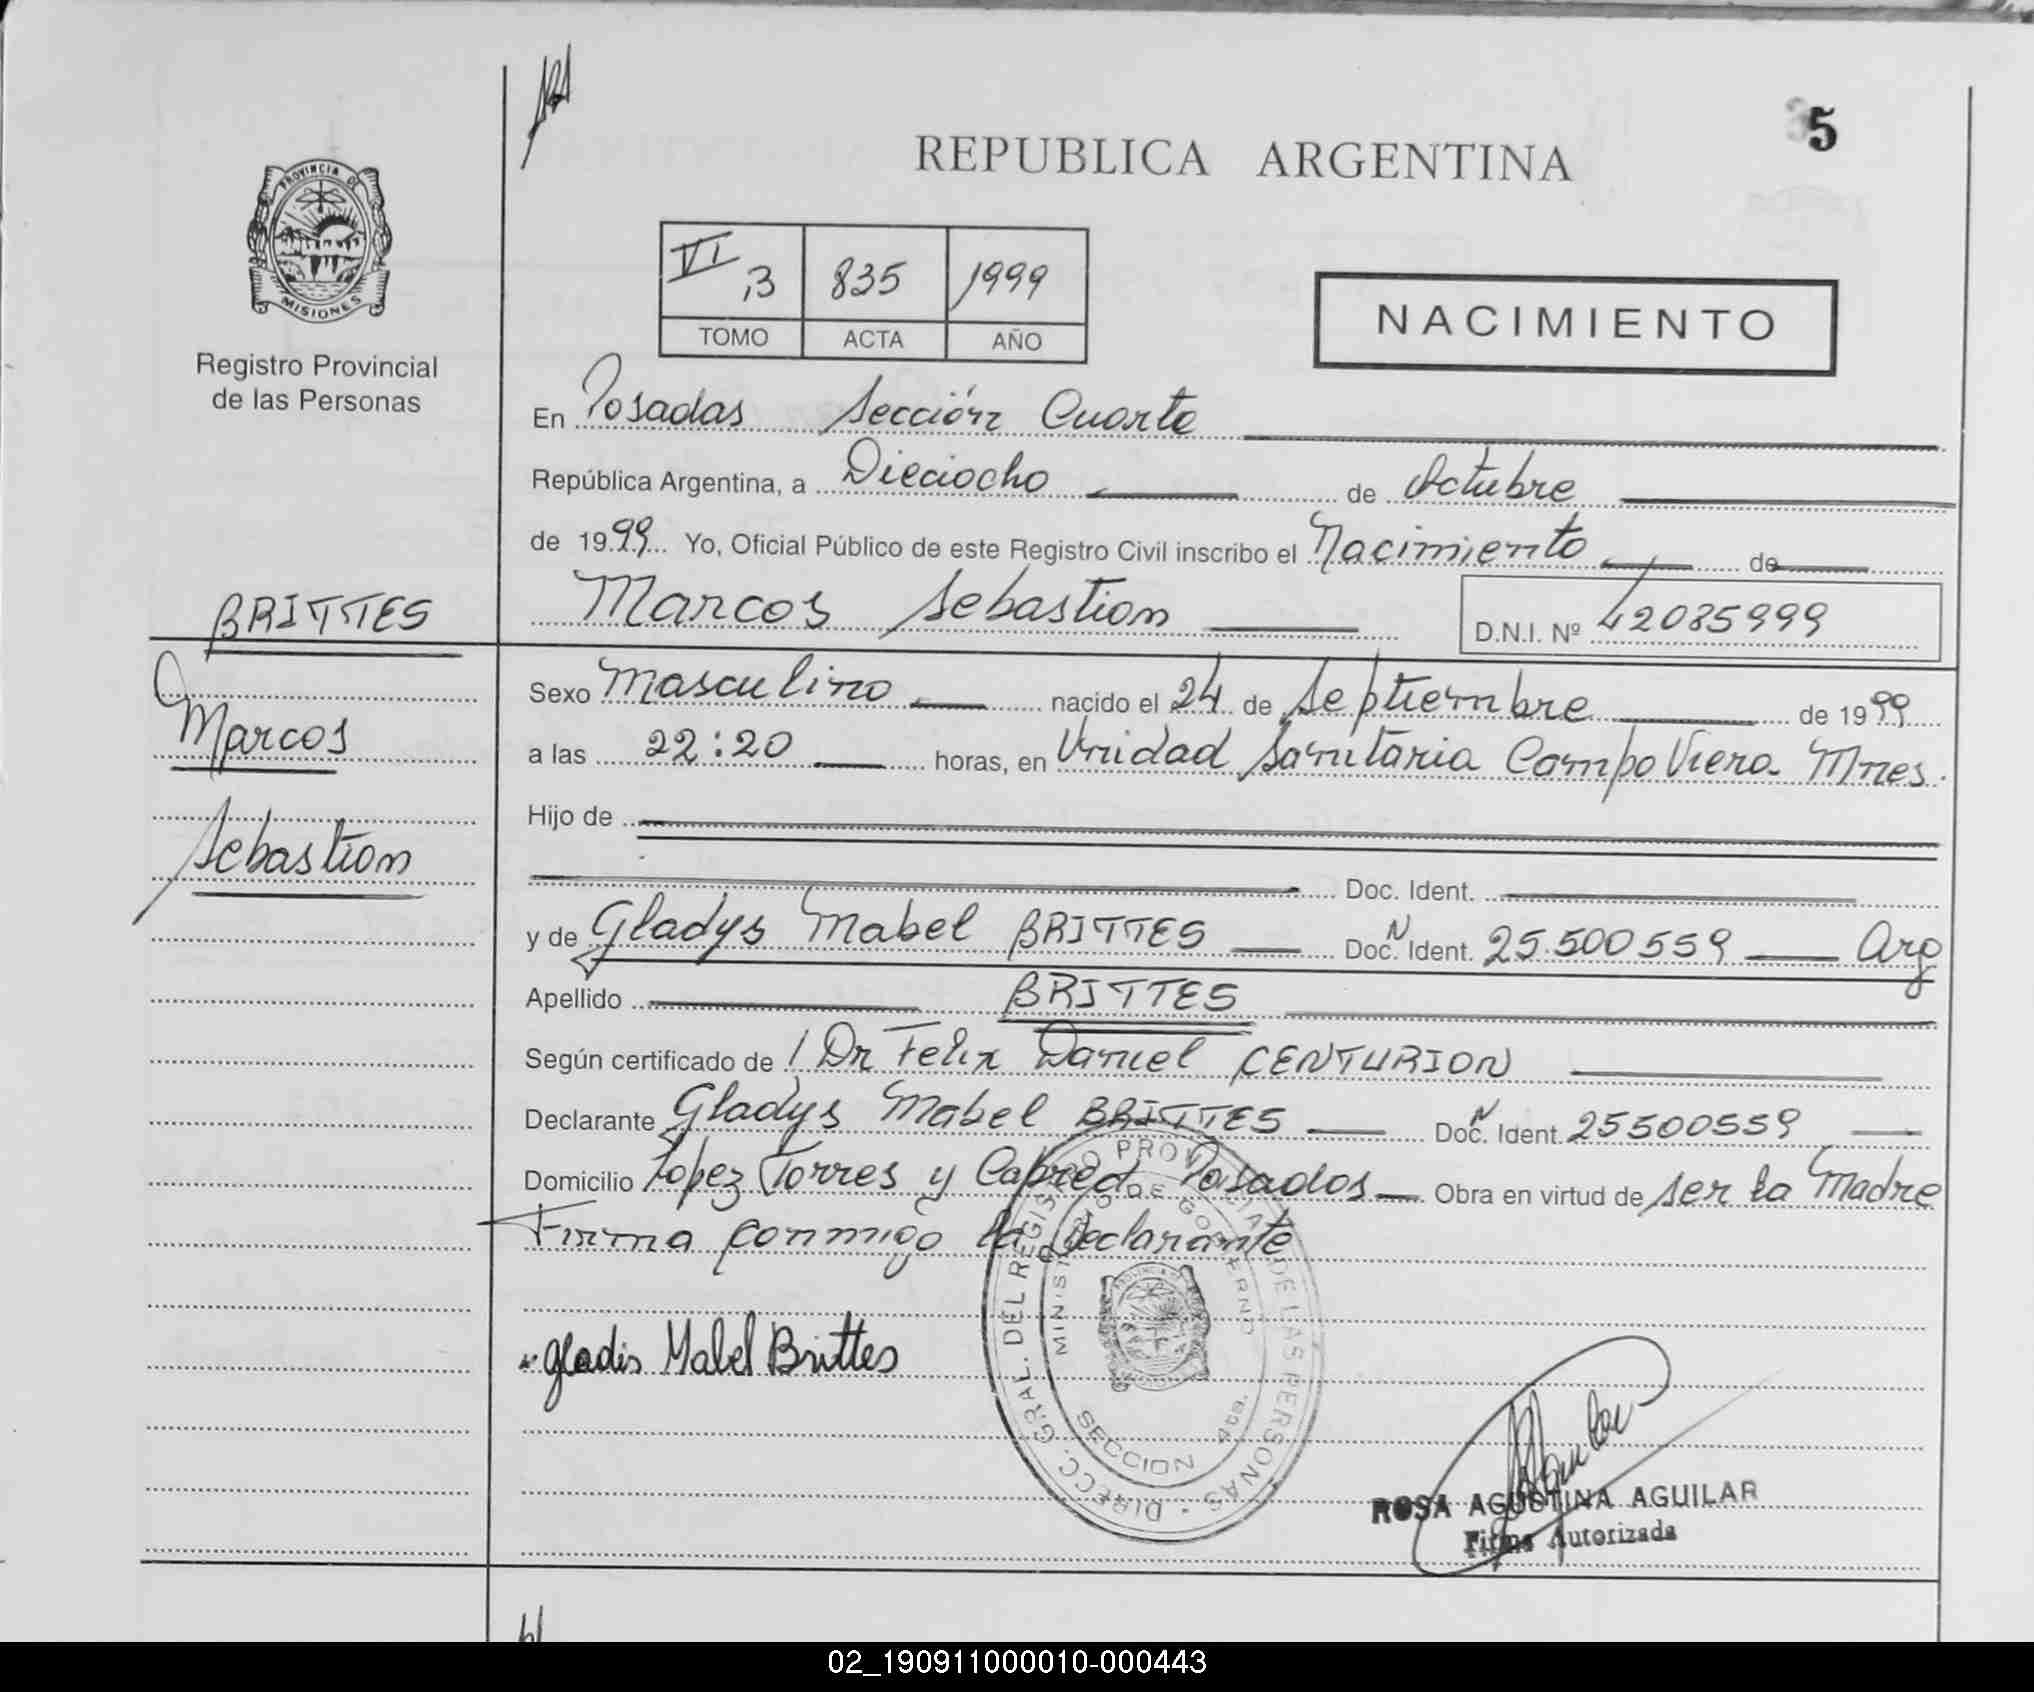 5
REPUBLICA ARGENTINA
PROVINCIA DE
MISIONES
Registro Provincial
de las Personas
VI 3 835 1999
TOMO ACTA AÑO
NACIMIENTO
En Posadas Sección Cuarta
República Argentina, a Dieciocho de Octubre
de 1999 Yo, Oficial Público de este Registro Civil inscribo el Nacimiento de
Marcos Sebastian D.N.I. Nº 42085999
BRITTES
Marcos
Sebastian
Sexo Masculino nacido el 24 de Septiembre de 1999
a las 22:20 horas, en Unidad Sanitaria Campo Viera Mnes.
Hijo de
Doc. Ident.
y de Gladys Mabel BRITTES Doc. N Ident. 25.500559 Arg
Apellido BRITTES
Según certificado de Dr Felix Daniel CENTURION
Declarante Gladys Mabel BRITTES Doc. N Ident. 25500559
Domicilio Lopez Torres y Cabred Posadas Obra en virtud de ser la Madre
Firma conmigo la Declarante
DIRECC. GRAL. DEL REGISTRO PROVINCIAL DE LAS PERSONAS
MINISTERIO DE GOBIERNO
SECCION 4ta.
Gladis Mabel Brittes
ROSA AGUSTINA AGUILAR
Firma Autorizada
02_190911000010-000443